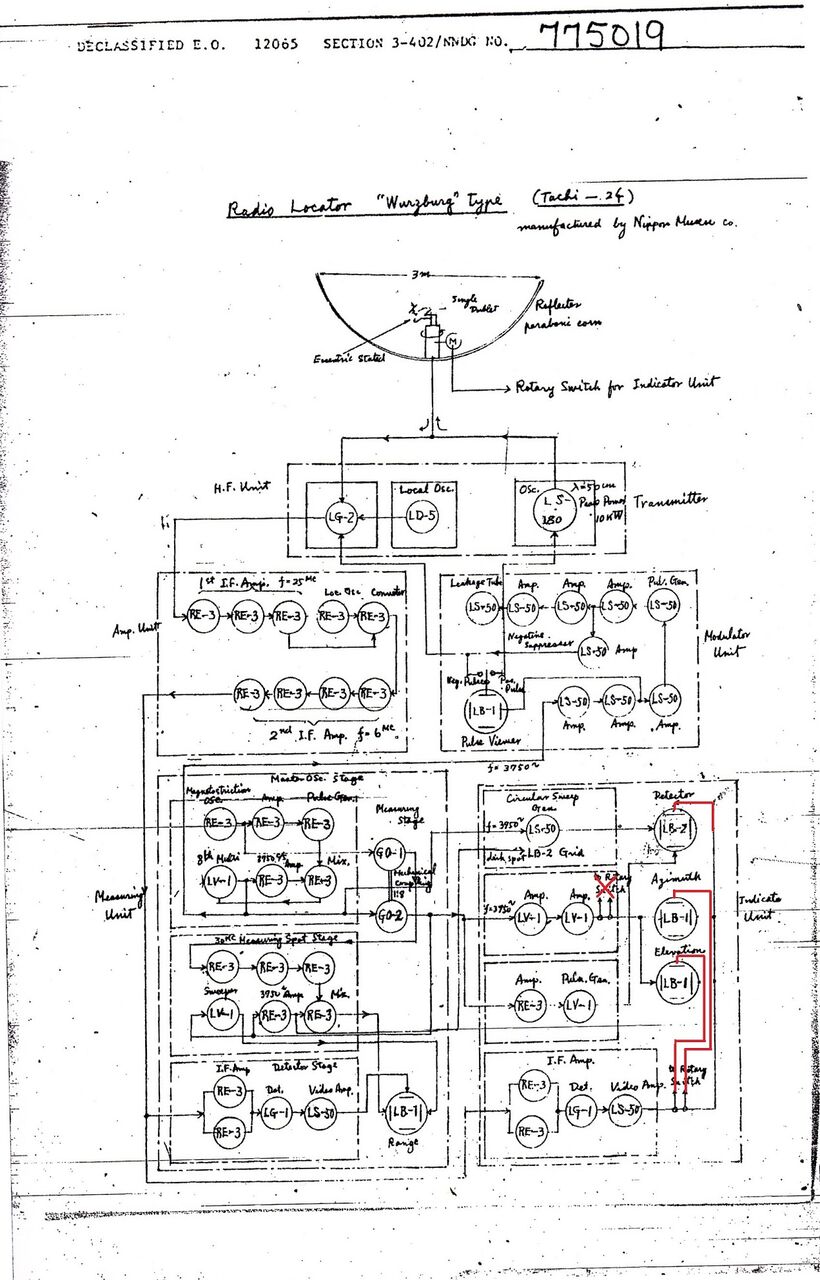 DECLASSIFIED E.O. 12065 SECTION 3-402/NNDG NO. 775019
Radio Locator "Wurzburg" Type (Tachi - 24)
manufactured by Nippon Musen co.
3m
Single
Doublet
Reflector
M
Eccentric Stated
Rotary Switch for Indicator Unit
H.F. Unit
Local Osc.
Osc.
λ=50cm
LG-2
LD-5
LS-
180
10KW
Transmitter
1st I.F. Amp. f=25 MC
Loc. Osc
RE-3 RE-3 RE-3 RE-3 RE-3
Amp. Unit
RE-3 RE-3 RE-3 RE-3
2nd I.F. Amp. f=6 MC
Leakage Tube Amp. Amp. Amp. Pul. Gen.
LS-50 LS-50 LS-50 LS-50 LS-50
Negative
Suppresser
LS-50 Amp
Modulator
Unit
Pulse
LB-1
LS-50 LS-50 LS-50
Amp. Amp. Amp.
Pulse Viewer
f=3750~
Master Osc. Stage
Magnetostriction
Osc. Amp. Pulse Gen.
RE-3 RE-3 RE-3
Measuring
Stage
GO-1
8th Multi Amp Mix.
LV-1 RE-3 RE-3
Mechanical
Coupling
1:8
GO-2
Measuring
Unit
30KC Measuring Spot Stage
RE-3 RE-3 RE-3
Sweeper 3750~ Amp Mix.
LV-1 RE-3 RE-3
I.F. Amp Detector Stage
RE-3
Det. Video Amp.
LG-1 LS-50
RE-3
LB-1
Range
Circular Sweep
Gen.
f=3950~
LS-50
LB-2 Grid
Detector
LB-2
to Rotary
Switch
Amp. Amp.
f=3750~
LV-1 LV-1
Azimuth
LB-1
Indicate
Unit
Elevation
LB-1
Amp. Puls. Gen.
RE-3 LV-1
I.F. Amp.
RE-3
Det. Video Amp.
LG-1 LS-50
RE-3
to Rotary
Switch